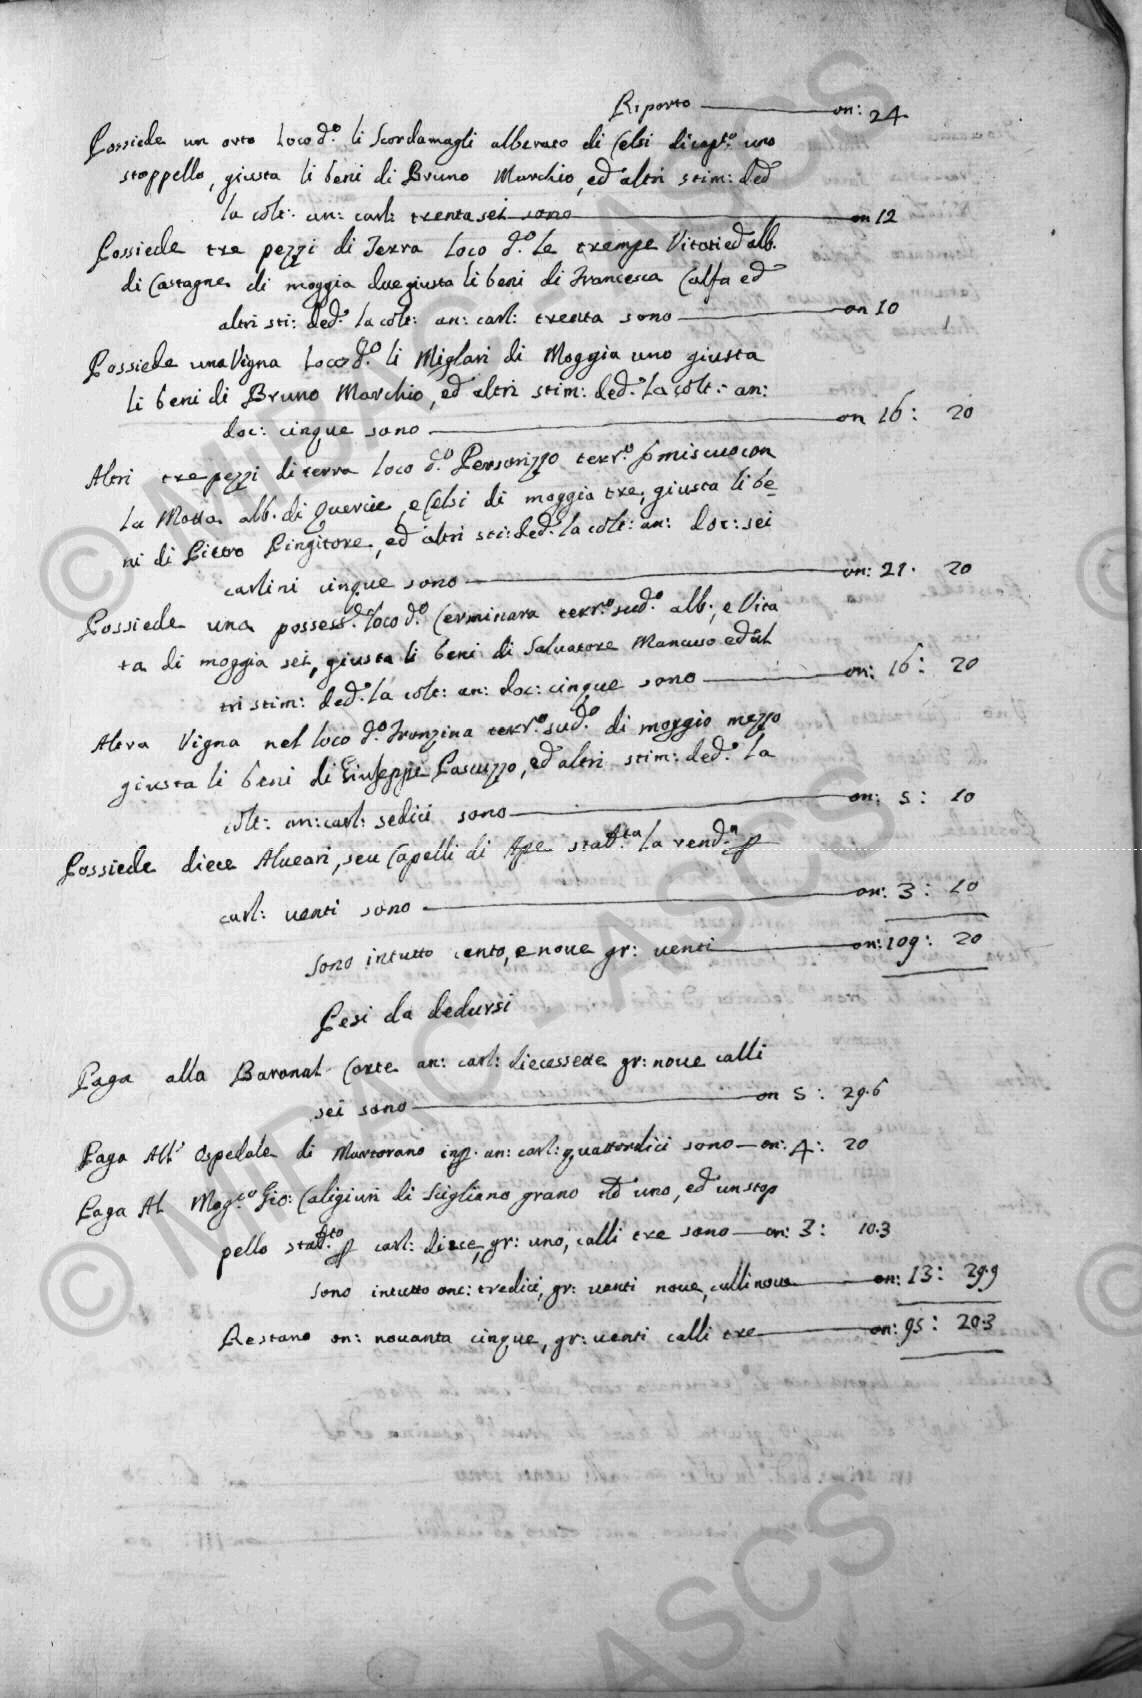 Riporto — on: 24
Possiede un orto loco d.º li Scordamagli alberato di Celsi di cap.tà uno
stoppello, giusta li beni di Bruno Marchio, ed altri stim: ded.
la colt: an: carl: trenta sei sono — on 12
Possiede tre pezzi di Terra loco d.º le trempe Vitati ed alb.
di Castagne di moggia due giusta li beni di Francesca Calfa ed
altri sti: ded.ª la colt: an: carl: trenta sono — on 10
Possiede una Vigna loco d.º li Migliari di Moggia uno giusta
li beni di Bruno Marchio, ed altri stim: ded.ª la colt: an:
doc: cinque sono — on 16: 20
Altri tre pezzi di terra loco d.º Personizzo terr.º promiscuo con
la Motta alb. di Quercie, e Celsi di moggia tre, giusta li be
ni di Pietro Pingitore, ed altri sti: ded.ª la colt: an: doc: sei
carlini cinque sono — on: 21. 20
Possiede una possess.e loco d.º Cerminara terr.º sud.º alb., e Vita
ta di moggia sei, giusta li beni di Salvatore Mancuso ed al
tri stim: ded.ª la colt: an: doc: cinque sono — on: 16: 20
Altra Vigna nel loco d.º Franzina terr.º sud.º di moggio mezzo
giusta li beni di Giuseppe Pascuzzo, ed altri stim: ded.ª la
colt: an: carl: sedici sono — on: 5: 10
Possiede diece Alveari, seu Capelli di Ape stab.ta la rend.ª p
carl: venti sono — on: 3: 10
sono intutto cento, e nove gr: venti — on: 109: 20
Pesi da dedursi
Paga alla Baronal Corte an: carl: diecessette gr: nove calli
sei sono — on 5: 29.6
Paga All' Ospedale di Martorano inp. an: carl: quattordici sono — on: 4: 20
Paga Al Mag.co Gio: Caligiuri di Scigliano grano uno, ed un stop
pello stab.to p carl: diece, gr: uno, calli tre sono — on: 3: 10.3
sono intutto onc: tredici, gr: venti nove, calli nove — on: 13: 29.9
Restano on: novanta cinque, gr: venti calli tre — on: 95: 20.3
© MIRAC - ASCS
© MIRAC - ASCS
ASCS